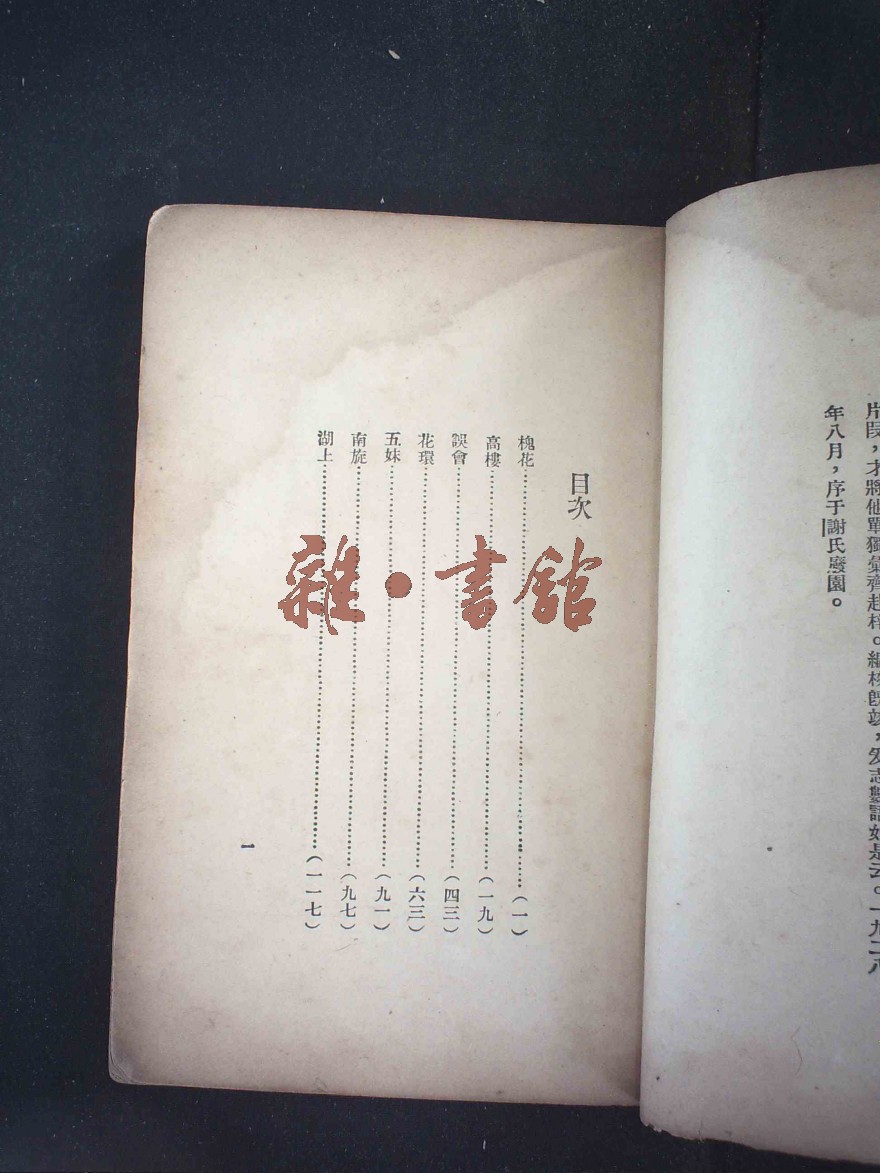 片段，才將他單獨彙齊赴梓。編校旣竣，爰志數語如是云。一九二八
年八月，序于謝氏廢園。
目次
槐花……（一）
高樓……（一九）
誤會……（四三）
花環……（六三）
五妹……（九一）
南旋……（九七）
湖上……（一一七）
一
雜·書館